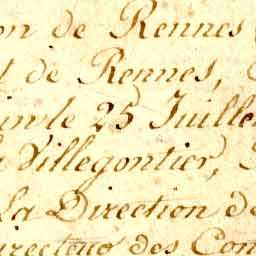 on de Rennes
t de Rennes,
le 25 Juille
Villegontier,
La Direction de
irecteur des Con